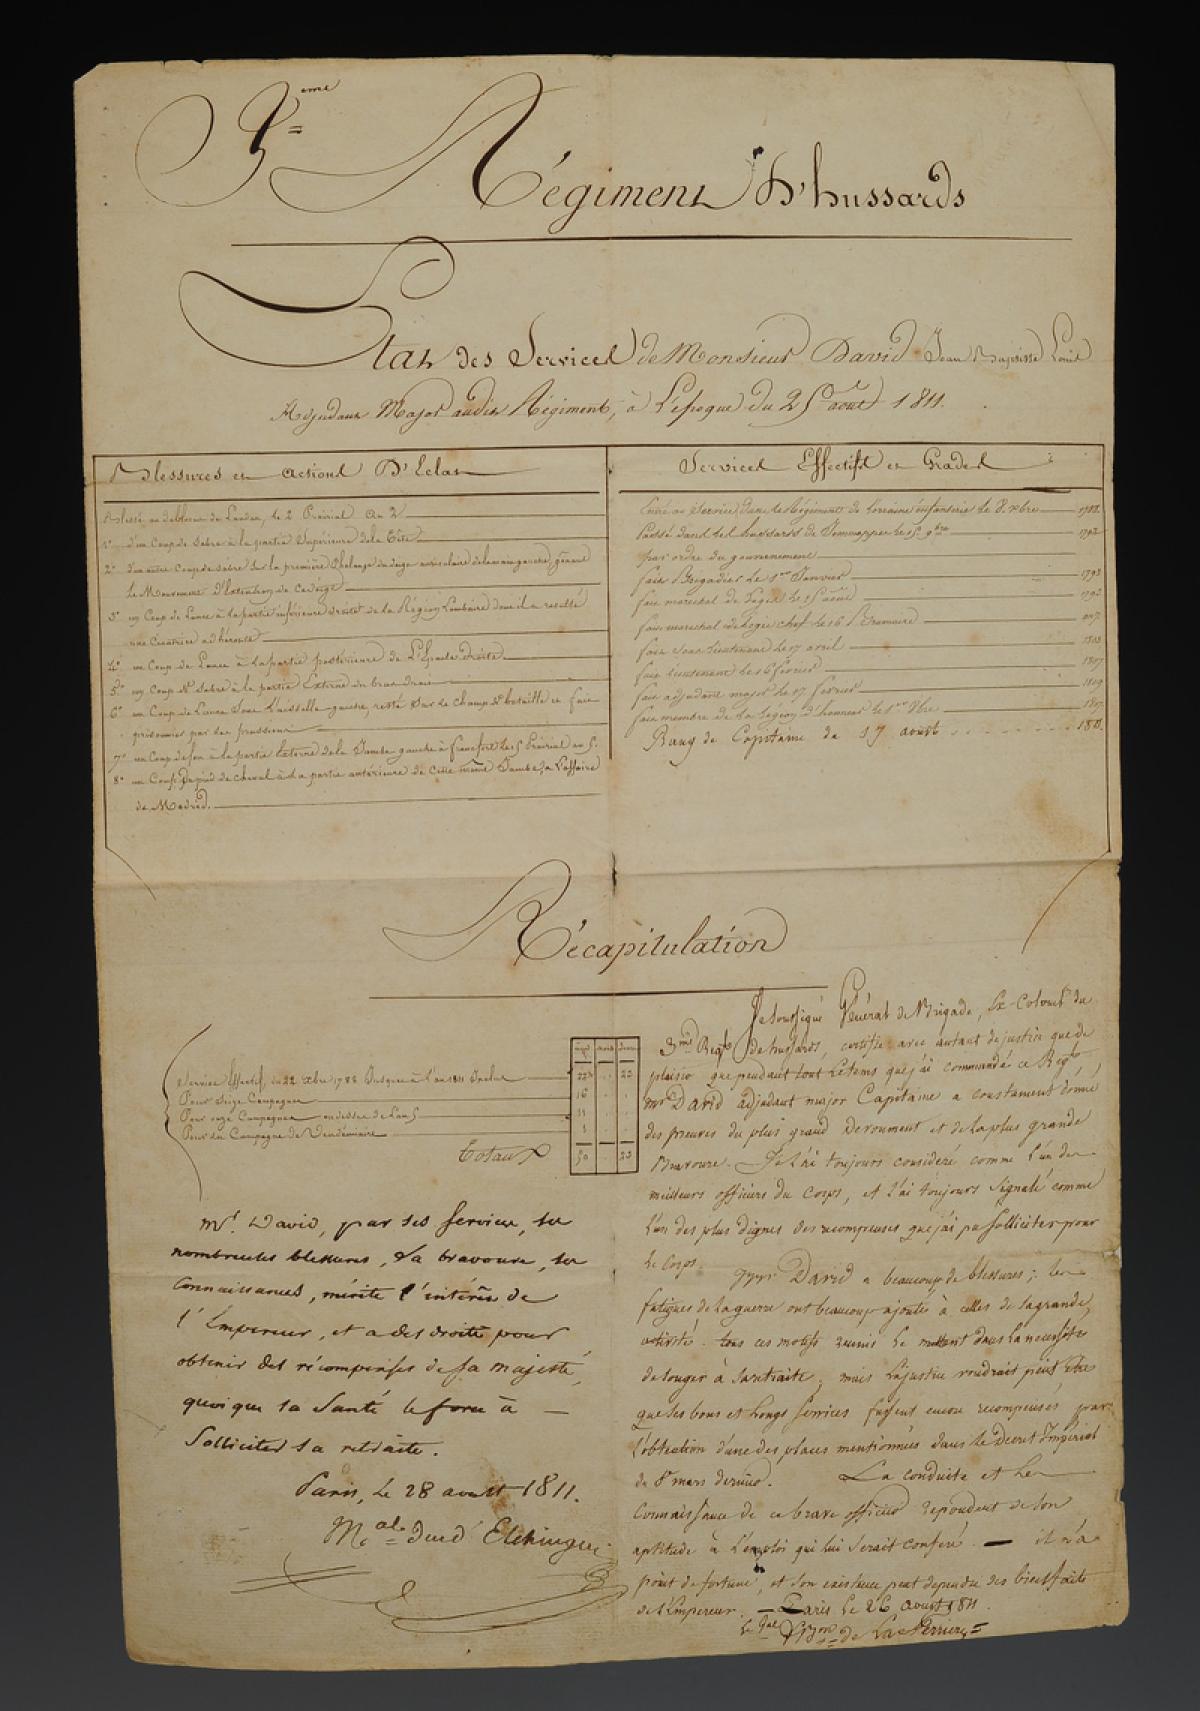 3=eme Régiment D'hussards
Etat des Services de Monsieur David Jean Baptiste Louis
Adjudant Major audit Régiment, à L'époque du 25 aout 1811.
Blessures et actions D'Eclat
Blessé au deblocus de Landau, le 2 Prairial An 2
1° d'un Coup de Sabre à la partie Supérieure de la Tête
2° d'un autre Coup de sabre Sur la première Phalange du doigt auriculaire de la main gauche, gênant
Le Mouvement D'Extention de Ce doigt
3° un Coup de Lance à la partie inférieure droite de la Région Lombaire dont il a resulté
une Cicatrice adhérente
4° un Coup de Lance à la partie posterieure de L'Epaule droite
5° un Coup de Sabre à la partie Externe du bras droit
6° un Coup de Lance Sous L'aisselle gauche, resté Sur le Champ de bataille et fait
prisonnier par les prussiens
7° un Coup de feu à la partie Externe de la Jambe gauche à francfort le 5 Prairial an 5.
8° un Coup de pied de cheval à la partie antérieure de Cette même Jambe, à L'affaire
de Madrid.
Services Effectifs et Grades
Entré au Service dans le Régiment de Lorraine infanterie le 8. xbre 1788.
Passé dans les hussards de Jemmappes le 9bre 1792
par ordre du gouvernement
fait Brigadier le 1er Janvier 1793
fait marechal de Logis le 1er août
fait marechal de logis chef le 16 Brumaire
fait Sous Lieutenant le 17 avril
fait Lieutenant le 16 fevrier 1807
fait adjudant major le 17 fevrier 1809
fait membre de la Légion d'honneur le 1er 8bre 1807
Rang de Capitaine du 17 aoust 1811.
Récapitulation
Service Effectif, du 22 xbre 1788 Jusques à l'an 1811 Inclus 22 23
Pour Seize Campagnes 16
Pour onze Campagnes au dessus de L'an 5 11
Pour un Campagne de Vendémiaire 1
Totaux 50 23
Mr. David, par ses services, ses
nombreuses blessures, sa bravoure, ses
connaissances, mérite l'intérêt de
l'Empereur, et a des droits pour
obtenir des récompenses de sa majesté,
quoi que sa Santé le force à
Solliciter sa retraite.
Paris, le 28 aoust 1811.
Mal= Duc d'Elchingen
Je soussigné Général de Brigade, Ex-Colonel du
3me Regt de hussards, certifie avec autant de justice que de
plaisir que pendant tout le tems que j'ai commandé ce Regt,
Mr David adjudant major Capitaine a constament donné
des preuves du plus grand dévoument et de la plus grande
Bravoure. Je l'ai toujours considéré comme l'un des
meilleurs officiers du Corps, et l'ai toujours Signalé comme
l'un des plus dignes des recompenses que j'ai pu solliciter pour
le Corps.
Mr David a beaucoup de blessures; les
fatigues de la guerre ont beaucoup ajouté à celles de sa grande
activité. tous ces motifs reunis le mettent dans la necessité
de songer à sa retraite; mais la justice voudrait peut être
que ses bons et longs services fussent encore recompensés par
l'obtention d'une des places mentionnées dans le Decret Impérial
du 8 mars dernier. La conduite et les
Connaissances de ce brave officier repondent de son
aptitude à l'emploi qui lui serait conféré. — il n'a
point de fortune, et son existence peut dependre des bienfaits
de l'Empereur. — Paris le 26 aoust 1811.
Le Gal Bron de La Ferriere